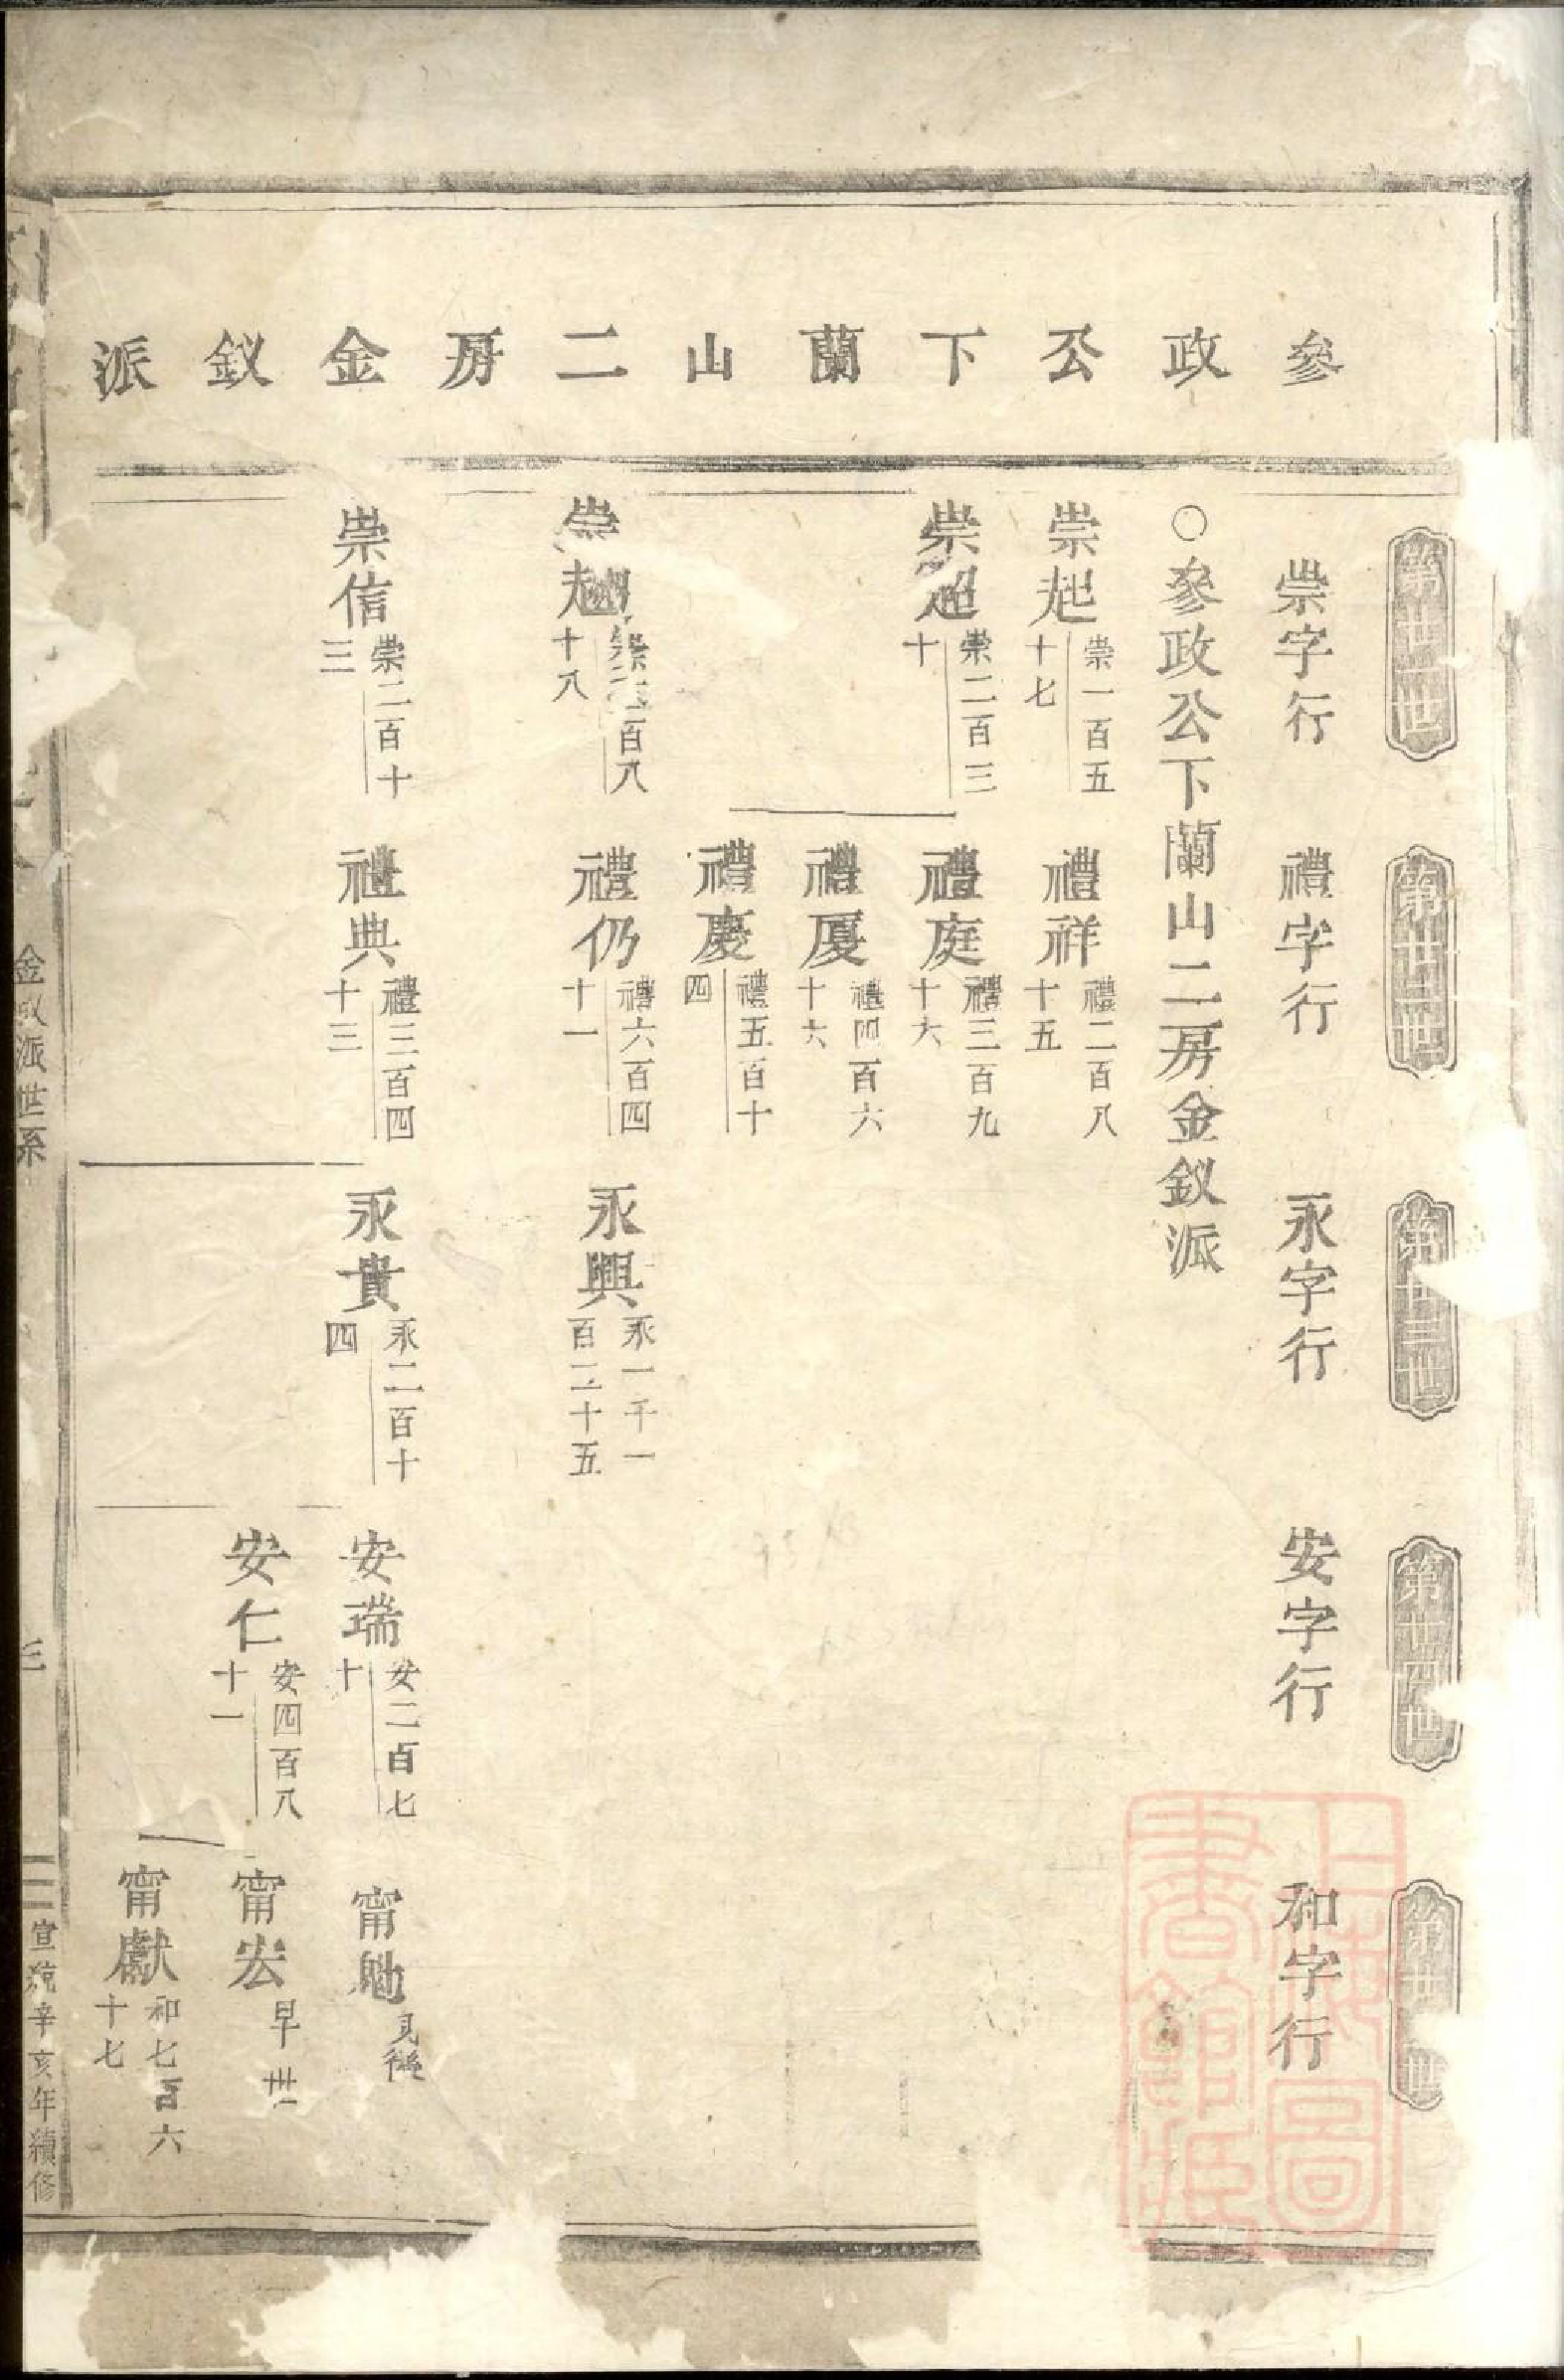 參政公下蘭山二房金釵派
第廿一世
崇字行
第廿二世
禮字行
第廿三世
永字行
第廿四世
安字行
第廿 世
和字行
○參政公下蘭山二房金釵派
崇起
崇一百五
十七
禮祥
禮二百八
十五
崇超
崇二百三
十
禮庭
禮三百九
十六
禮厦
禮四百六
十六
禮慶
禮五百十
四
崇越
崇 百八
十八
禮仍
禮六百四
十一
永興
永一千一
百二十五
崇信
崇二百十
三
禮典
禮三百四
十三
永貴
永二百十
四
安瑞
安二百七
十
甯馳
見後
安仁
安四百八
十一
甯宏
早世
甯獻
和七百六
十七
金釵派世系
三
宣統辛亥年續修
上海圖書館藏